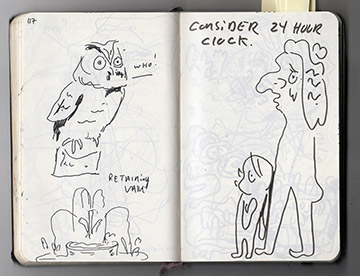 117
WHO!
RETAINING
WALL
CONSIDER 24 HOUR
CLOCK.